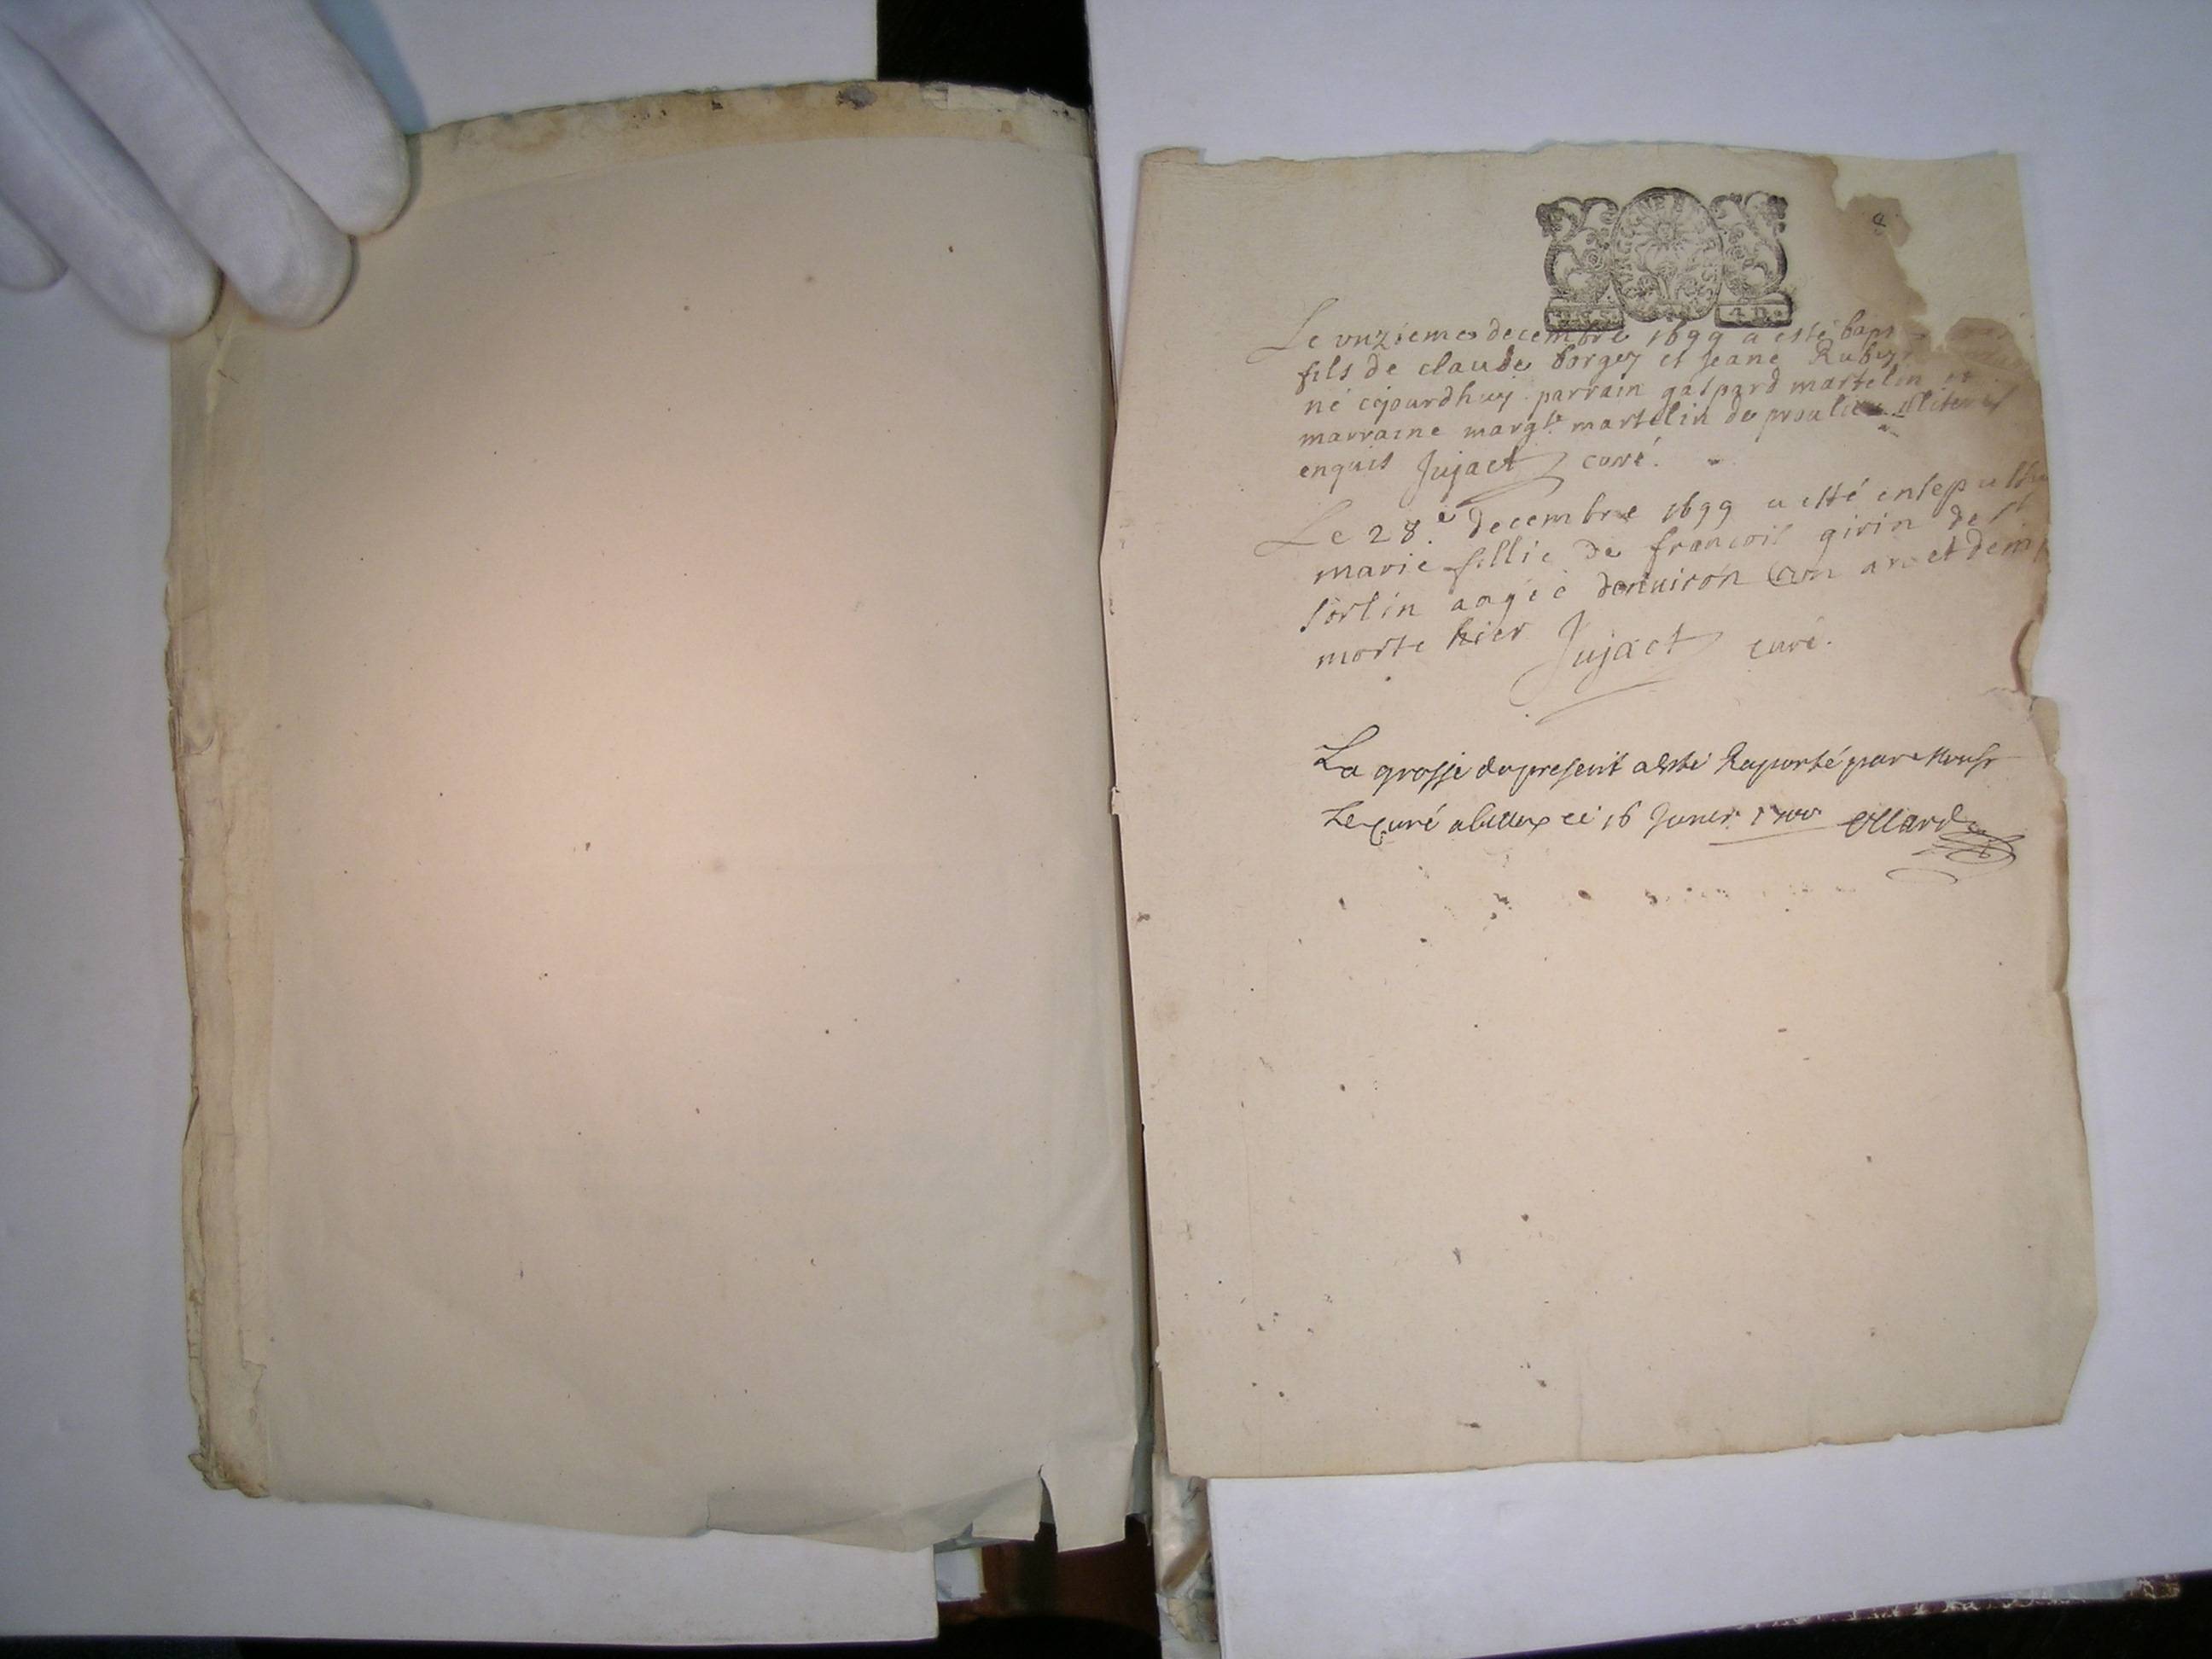 8
4 D.
Le unzieme decembre 1699 a esté bapt
fils de claude borgey et jeane Rubey
né cejourdhuy parrain gaspard martelin et
marraine margte martelin de proulieu
enquis Jujact curé.
Le 28.e decembre 1699 a esté ensepultu
marie fillie de françois girin de st
sorlin aagée denuiron un an et demi
morte hier Jujact curé.
La grosse du present a esté Raporté par Monsr
Le Curé a ce 16 Janvr 1700